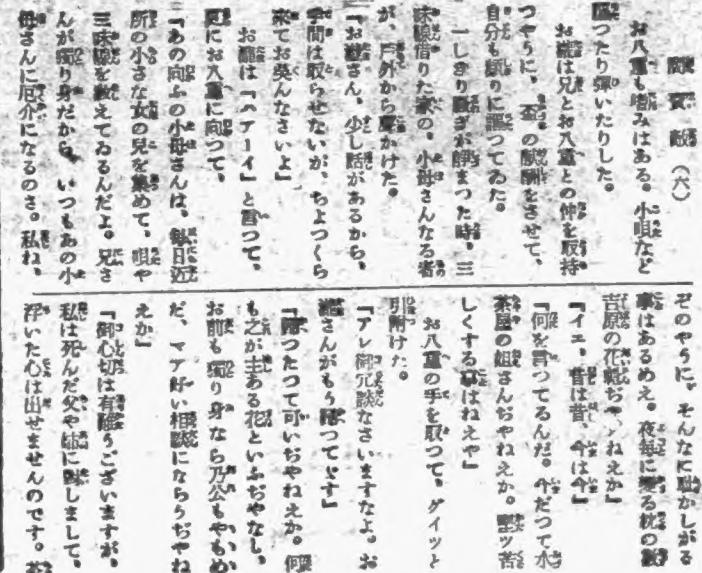 敵（六）
お八重も嗜みはある。小唄など
唄つたり彈いたりした。
お瀧は兄とお八重との仲を取持
つやうに、盃の獻酬をさせて、
自分も頻りに謡つてゐた。
一しきり騷ぎが靜まつた時、三
味線借りた家の、小母さんなる者
が、戸外から聲かけた。
『お瀧さん、少し話があるから、
手間は取らせないが、ちよつくら
來てお吳んなさいよ』
お瀧は『ハアーイ』と言つて、
更にお八重に向つて、
『あの向ふの小母さんは、毎日近
所の小さな女の兒を集めて、唄や
三味線を敎えてゐるんだよ。兄さ
んが獨り身だから、いつもあの小
母さんに厄介になるのさ。私ね、
ぞのやうに、そんなに恥かしがる
事はあるめえ。夜每に變る枕の數
吉原の花魁ぢやねえか』
『イエ、昔は昔、今は今』
『何を言つてるんだ。今だつて水
茶屋の姐さんぢやねえか。堅ツ苦
しくする事はねえや』
お八重の手を取つて、グイツと
引附けた。
『アレ御冗談なさいますなよ。お
瀧さんがもう歸つてゞす』
『歸つたつて可いぢやねえか。何
も之が主ある花といふぢやなし、
お前も獨り身なら乃公もやもめ
だ、マア好い相談にならうぢやね
えか』
『御心切は有難うございますが、
私は死んだ父や姉に對しまして、
浮いた心は出せませんのです。